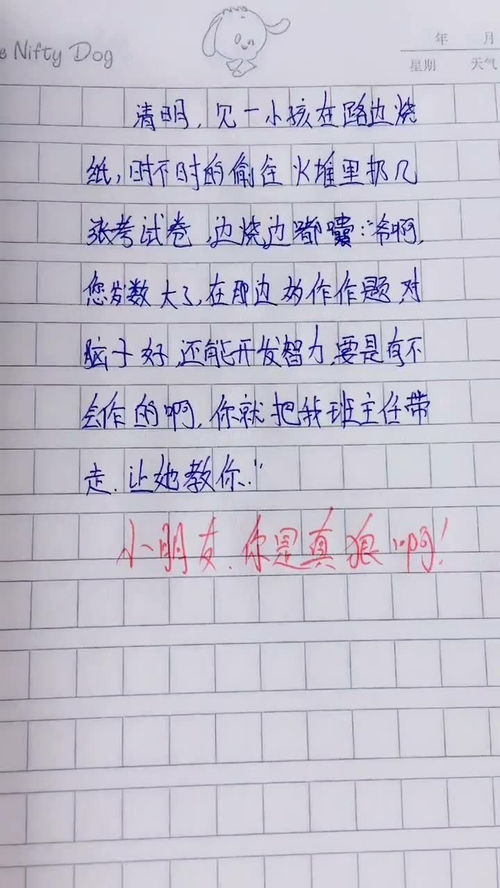 e Nifty Dog
年 月
星期 天气
清明,见一小孩在路边烧
纸,时不时的偷往火堆里扔几
张考试卷,边烧边嘟囔:"爷啊,
您岁数大了,在那边多作作题对
脑子好,还能开发智力,要是有不
会作的啊,你就把我班主任带
走,让她教你."
小朋友.你是真狠啊!